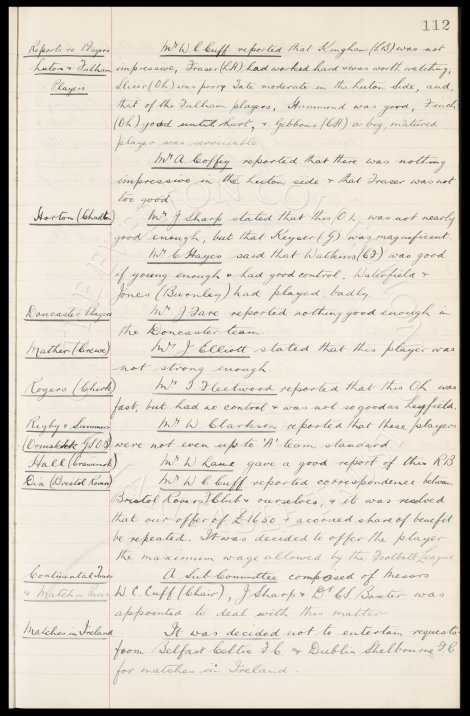 112
Reports re Players Mr W C Cuff reported that Kingham (LB) was not
Luton & Fulham impressive, Fraser (LH) had worked hard & was worth watching,
Players (Oh) was poor & Tate moderate in the Luton side, and,
that of the Fulham players, Hammond was good, Finch
(Oh) good until hurt, & Gibbons (CH) a big, matured
player was serviceable.
Mr A. Coffey reported that there was nothing
impressive in the Luton side & that Fraser was not
too good.
Horton (Charlton) Mr J Sharp stated that this O.L. was not nearly
good enough, but that Keyser (G) was magnificent
Mr C Hayes said that Watkins (CF) was good
if young enough & had good control. Waterfield &
Jones (Burnley) had played badly
Doncaster Players Mr J Fare reported nothing good enough in
the Doncaster team.
Mather (Crewe) Mr J Elliott stated that this player was
not strong enough
Rogers (Chirk) Mr T Fleetwood reported that this O.L. was
fast, but had no control & was not so good as Leyfield.
Rigby & Summers Mr W Clarkson reported that these players
(Ormskirk GSOB) were not even up to 'A' team standard
Hall Mr W Lowe gave a good report of this R.B
Rix (Bristol Rovers) Mr W C Cuff reported correspondence between
Bristol Rovers F Club & ourselves, & it was resolved
that our offer of £1650 + accrued share of benefit
be repeated. It was decided to offer the player
the maximum wage allowed by the Football League
Continental Tour A Sub Committee composed of Messrs
& Match in Paris W C. Cuff (Chair), J Sharp & Dr C S Baxter was
appointed to deal with this matter
Matches in Ireland It was decided not to entertain requests
from Belfast Celtic F.C. & Dublin Shelbourne F.C
for matches in Ireland.